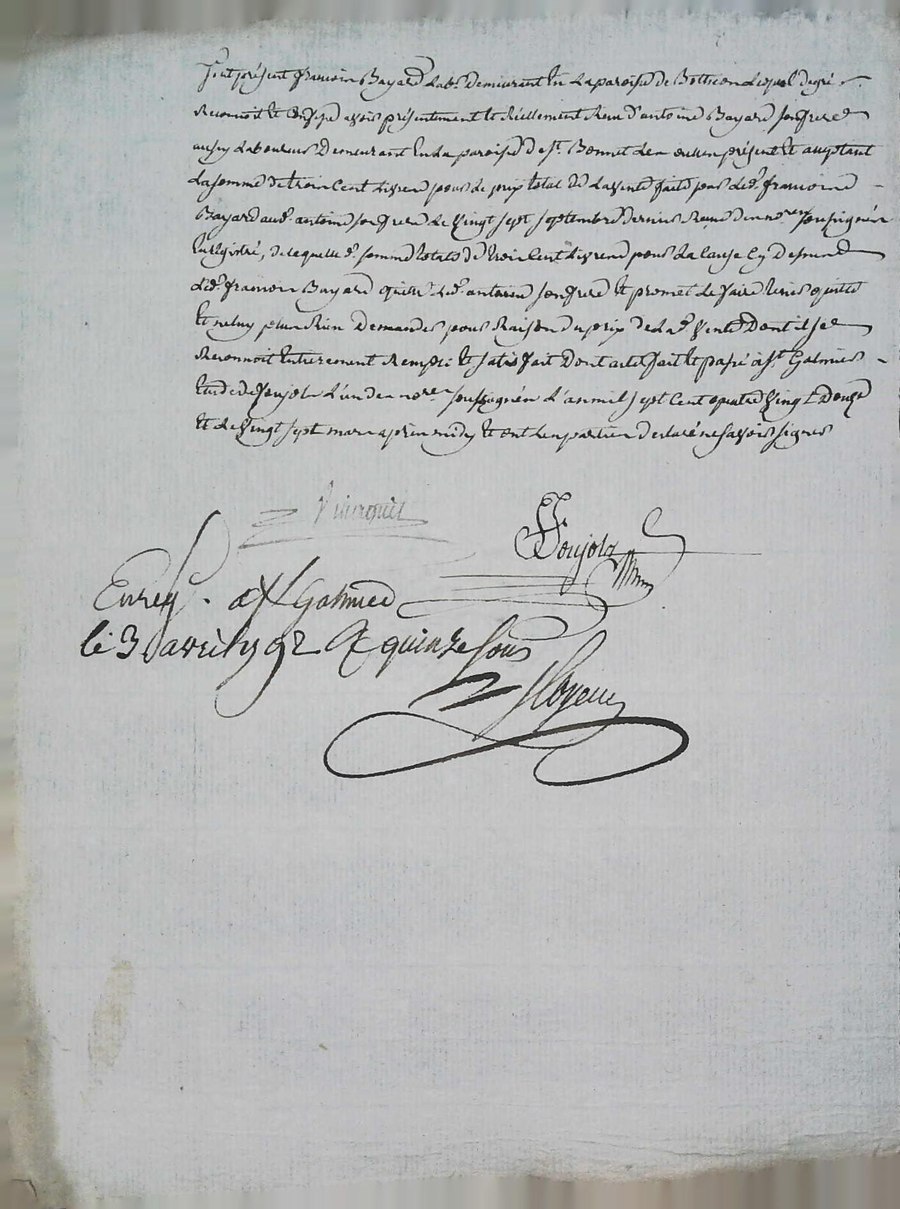 Fut présent françois Bayard lab.r demeurant en la paroisse de Bothéon lequel de gré
reconnoit et confesse avoir présentement et réellement reçu d'antoine Bayard son frere
aussy laboureur demeurant en la paroisse de St. Bonnet présent et acceptant
la somme de trois cent livres pour le prix total de la vente faite par led. françois
Bayard aud. antoine son frere le vingt sept septembre dernier reçue d'un no.res soussignés
Enregistré, de laquelle d. somme totale de trois cent livres pour la cause cy dessus
led. françois Bayard quitte led. antoine son frere et promet le faire tenir quitte
et ne luy plus rien demander pour raison du prix de la d. vente dont il se
reconnoit entierement rempli et satisfait dont acte fait et passé à St. Galmier
Etude de Poujolz l'un des no.res soussignés l'an mil sept cent quatre vingt douze
et le vingt sept mars après midy et ont les parties déclaré ne savoir signer
Poujolz
Enreg. a St Galmier
le 3 avril 1792 R quinze sous